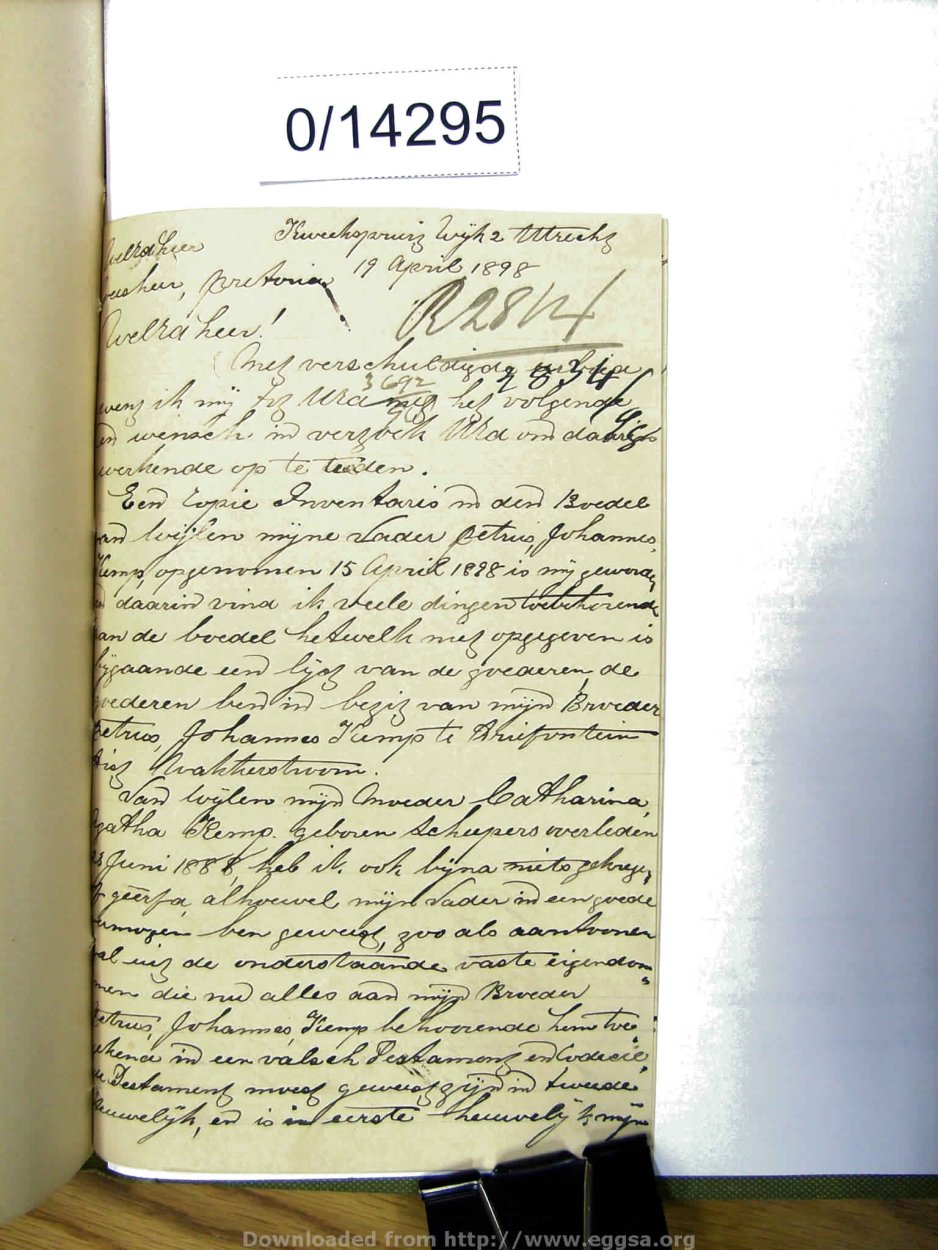 0/14295
Kweekspruit Wijk 2 Utrecht
WelEd Heer
19 April 1898
Pretoria
WelEd heer!
Met verschuldigde
3692 2834
ik mij tot UEd met het volgende
en wensch en verzoek UEd om
werkende op te treden.
Een Copie Inventaris in den Boedel
van wijlen mijne Vader Petrus, Johannes,
Kemp, opgenomen 15 April 1898 is mij geworden
daarin vind ik veele dingen toebehorende
van de boedel hetwelk niet opgegeven is
bijgaande een lijst van de goederen, de
goederen ben in bezit van mijn Broeder
Petrus, Johannes Kemp te Driefontein
Dist Wakkerstroom.
Van wijlen mijn Moeder Catharina,
Agatha Kemp. geboren Scheepers overleden
Juni 1888, heb ik ook bijna niets gekregen
of geerfd, alhoewel mijn Vader in een goede
vermogen ben geweest, zoo als aantoonen
zal uit de onderstaande vaste eigendom
men die nu alles aan mijn Broeder
Petrus, Johannes, Kemp behoorende hem toe
kend in een valsch Testament en Codecil,
Testament moest geweest zijn in tweede
heuwelijk, en is in eerste heuwelijk mijn
Downloaded from http://www.eggsa.org